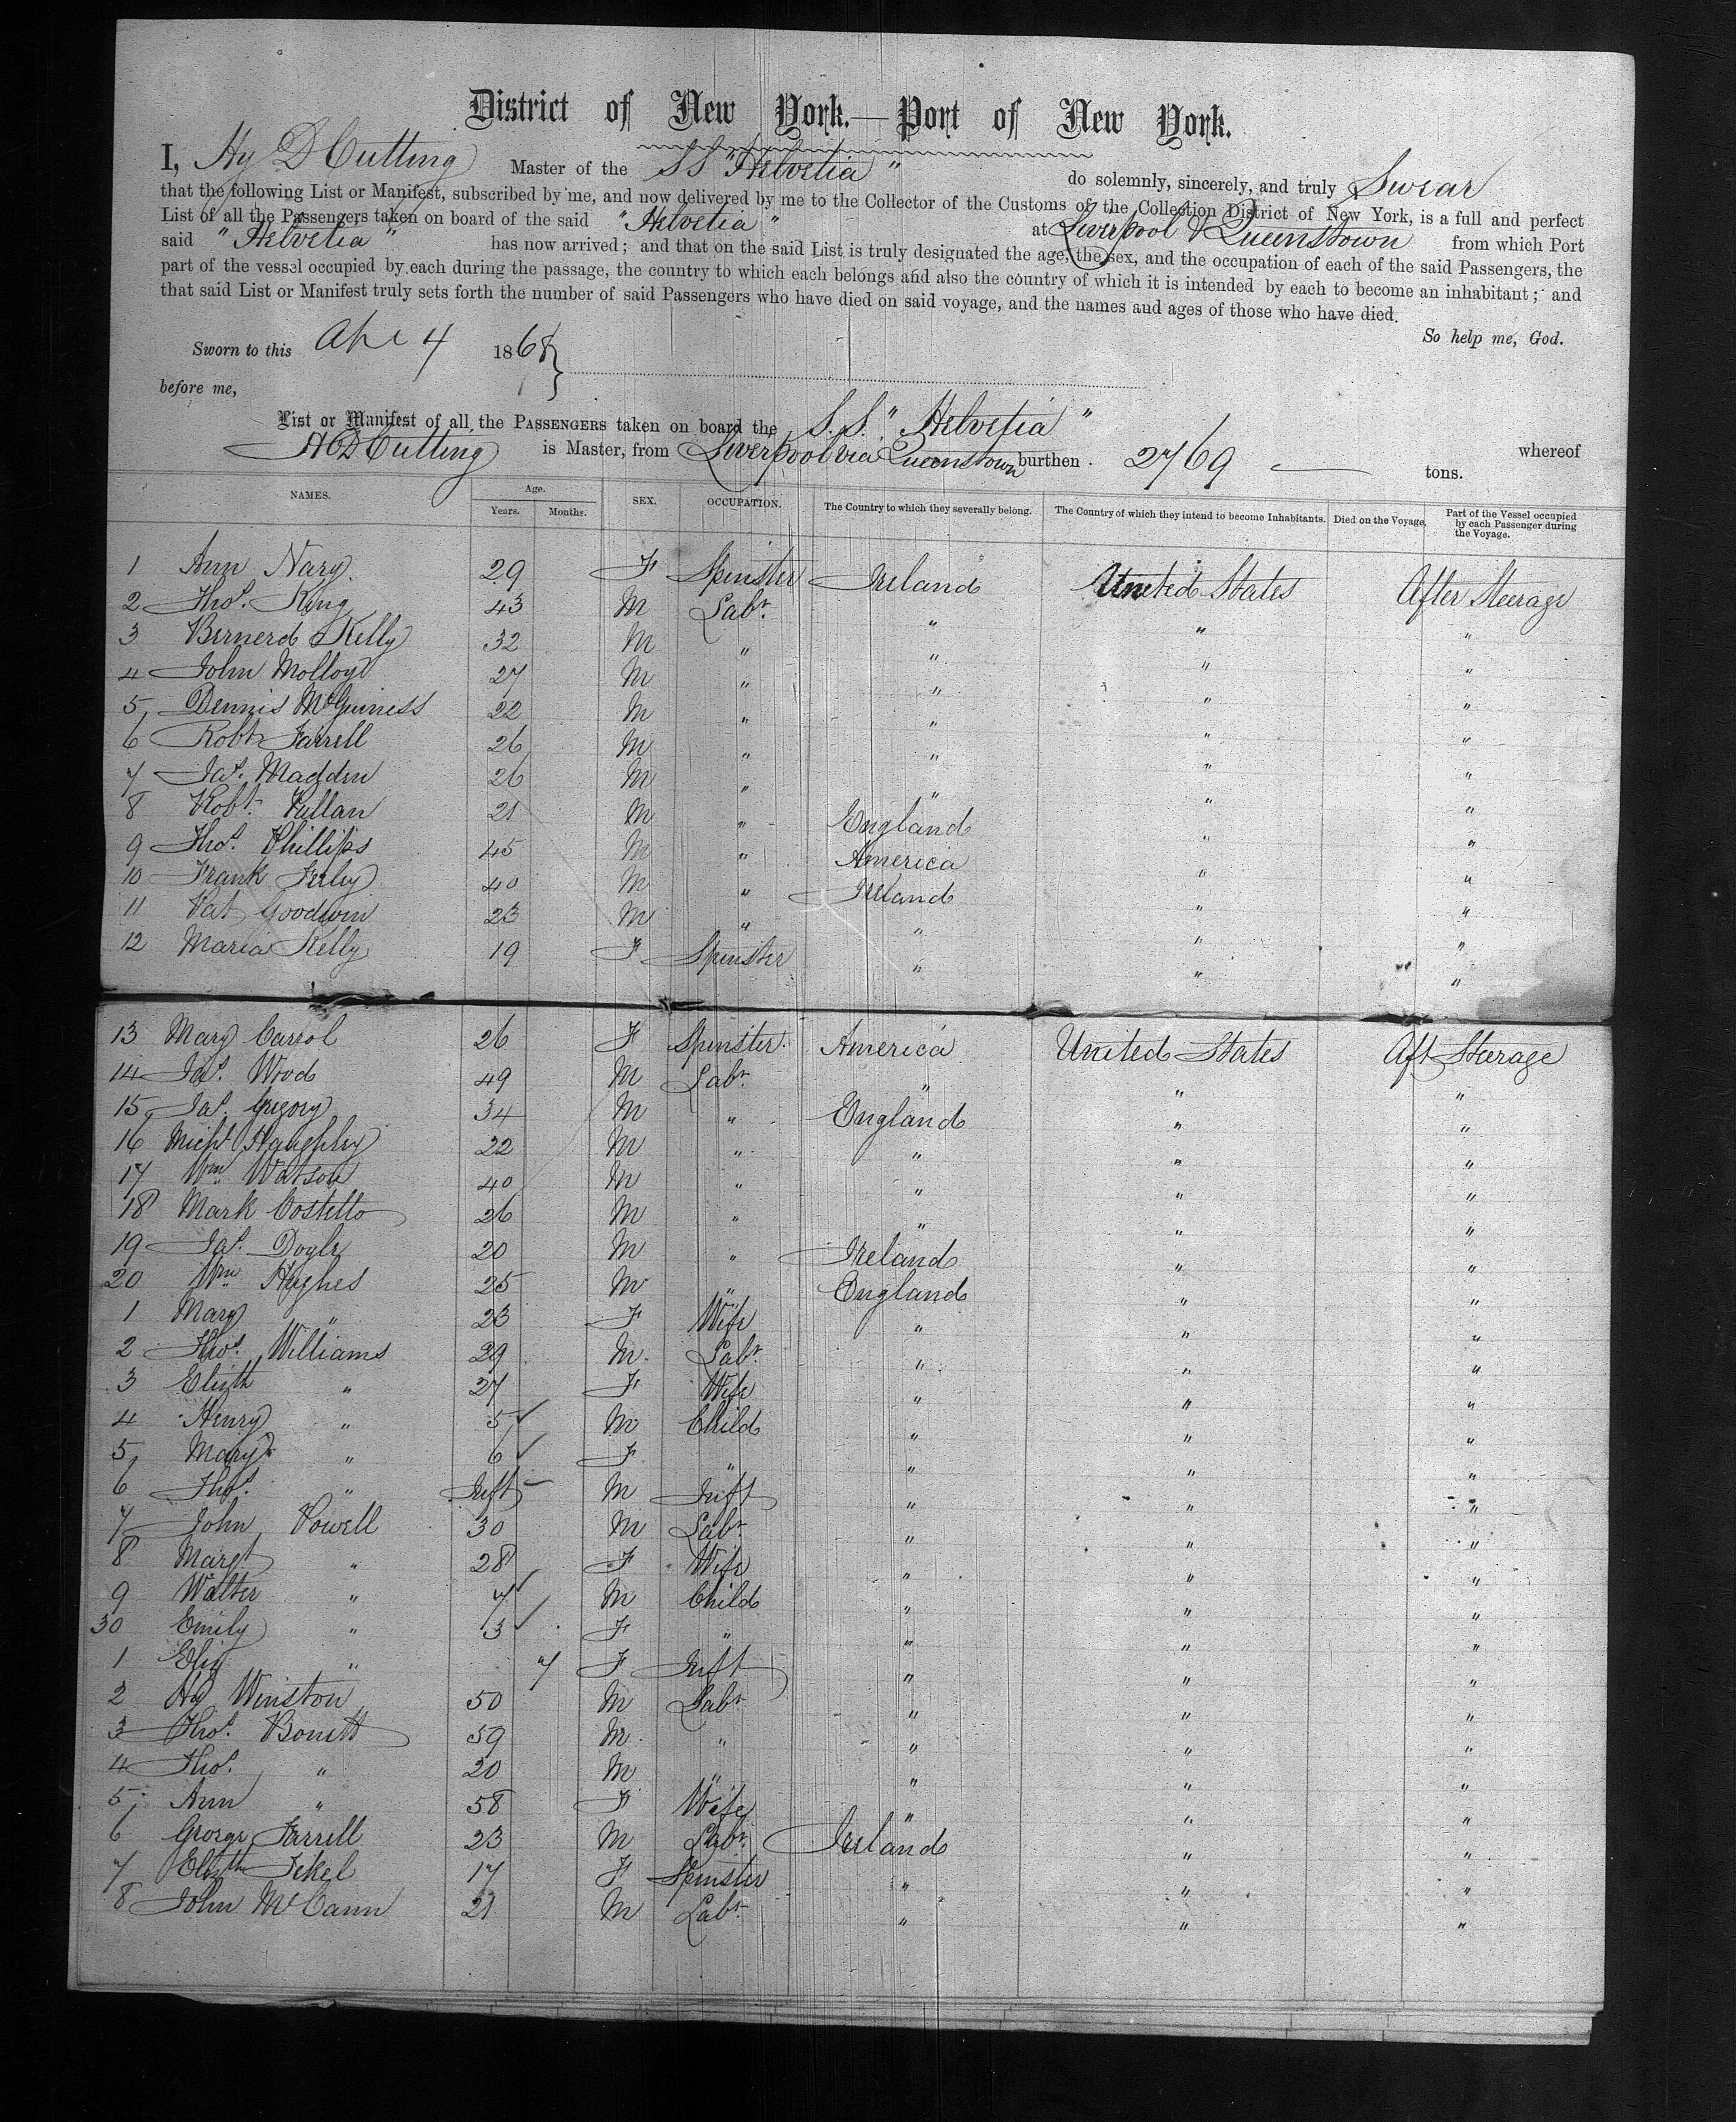 District of New York.—Port of New York.
I, Hy D Cutting Master of the SS "Helvetia" do solemnly, sincerely, and truly Swear
that the following List or Manifest, subscribed by me, and now delivered by me to the Collector of the Customs of the Collection District of New York, is a full and perfect
List of all the Passengers taken on board of the said "Helvetia" at Liverpool & Queenstown from which Port
said "Helvetia" has now arrived; and that on the said List is truly designated the age, the sex, and the occupation of each of the said Passengers, the
part of the vessel occupied by each during the passage, the country to which each belongs and also the country of which it is intended by each to become an inhabitant; and
that said List or Manifest truly sets forth the number of said Passengers who have died on said voyage, and the names and ages of those who have died.
So help me, God.
Sworn to this 4 1868
before me,
List or Manifest of all the PASSENGERS taken on board the S.S. "Helvetia" whereof
HD Cutting is Master, from Liverpool via Queenstown burthen 2769 — tons.
NAMES. Age. Years. Months. SEX. OCCUPATION. The Country to which they severally belong. The Country of which they intend to become Inhabitants. Died on the Voyage. Part of the Vessel occupied by each Passenger during the Voyage.
1 Ann Nary 29 F Spinster Ireland United States After Steerage
2 Thos. King 43 M Labr. " " "
3 Bernerd Kelly 32 M " " " "
4 John Molloy 27 M " " " "
5 Dennis McGuiness 22 M " " " "
6 Robt Farrell 26 M " " " "
7 Jas. Madden 26 M " " " "
8 Robt. Pullan 21 M " England " "
9 Thos. Phillips 45 M " America " "
10 Frank 40 M " Ireland " "
11 Pat Goodwin 23 M " " " "
12 Maria Kelly 19 F Spinster " " "
13 Mary Carrol 26 F Spinster America United States Aft Steerage
14 Jas. Wood 49 M Labr. " " "
15 Jas. Gregory 34 M " England " "
16 Michl Haughey 22 M " " " "
17 Wm Watson 40 M " " " "
18 Mark Costello 26 M " " " "
19 Jas. Doyle 20 M " Ireland " "
20 Wm Hughes 25 M " England " "
1 Mary " 23 F Wife " " "
2 Thos. Williams 29 M Labr. " " "
3 Elizth " 27 F Wife " " "
4 Henry " 5 M Child " " "
5 Mary " 6 F " " " "
6 Thos. " Inft M Inft " " "
7 John Powell 30 M Labr. " " "
8 Margt " 28 F Wife " " "
9 Walter " 7 M Child " " "
30 Emily " 3 F " " " "
1 Eliz " 7 F Inft " " "
2 Hy Winston 50 M Labr. " " "
3 Thos. Bonett 59 M " " " "
4 Thos. " 20 M " " " "
5 Ann " 58 F Wife " " "
6 George Farrell 23 M Labr. Ireland " "
7 Elizth Fekel 17 F Spinster " " "
8 John McCann 21 M Labr. " " "